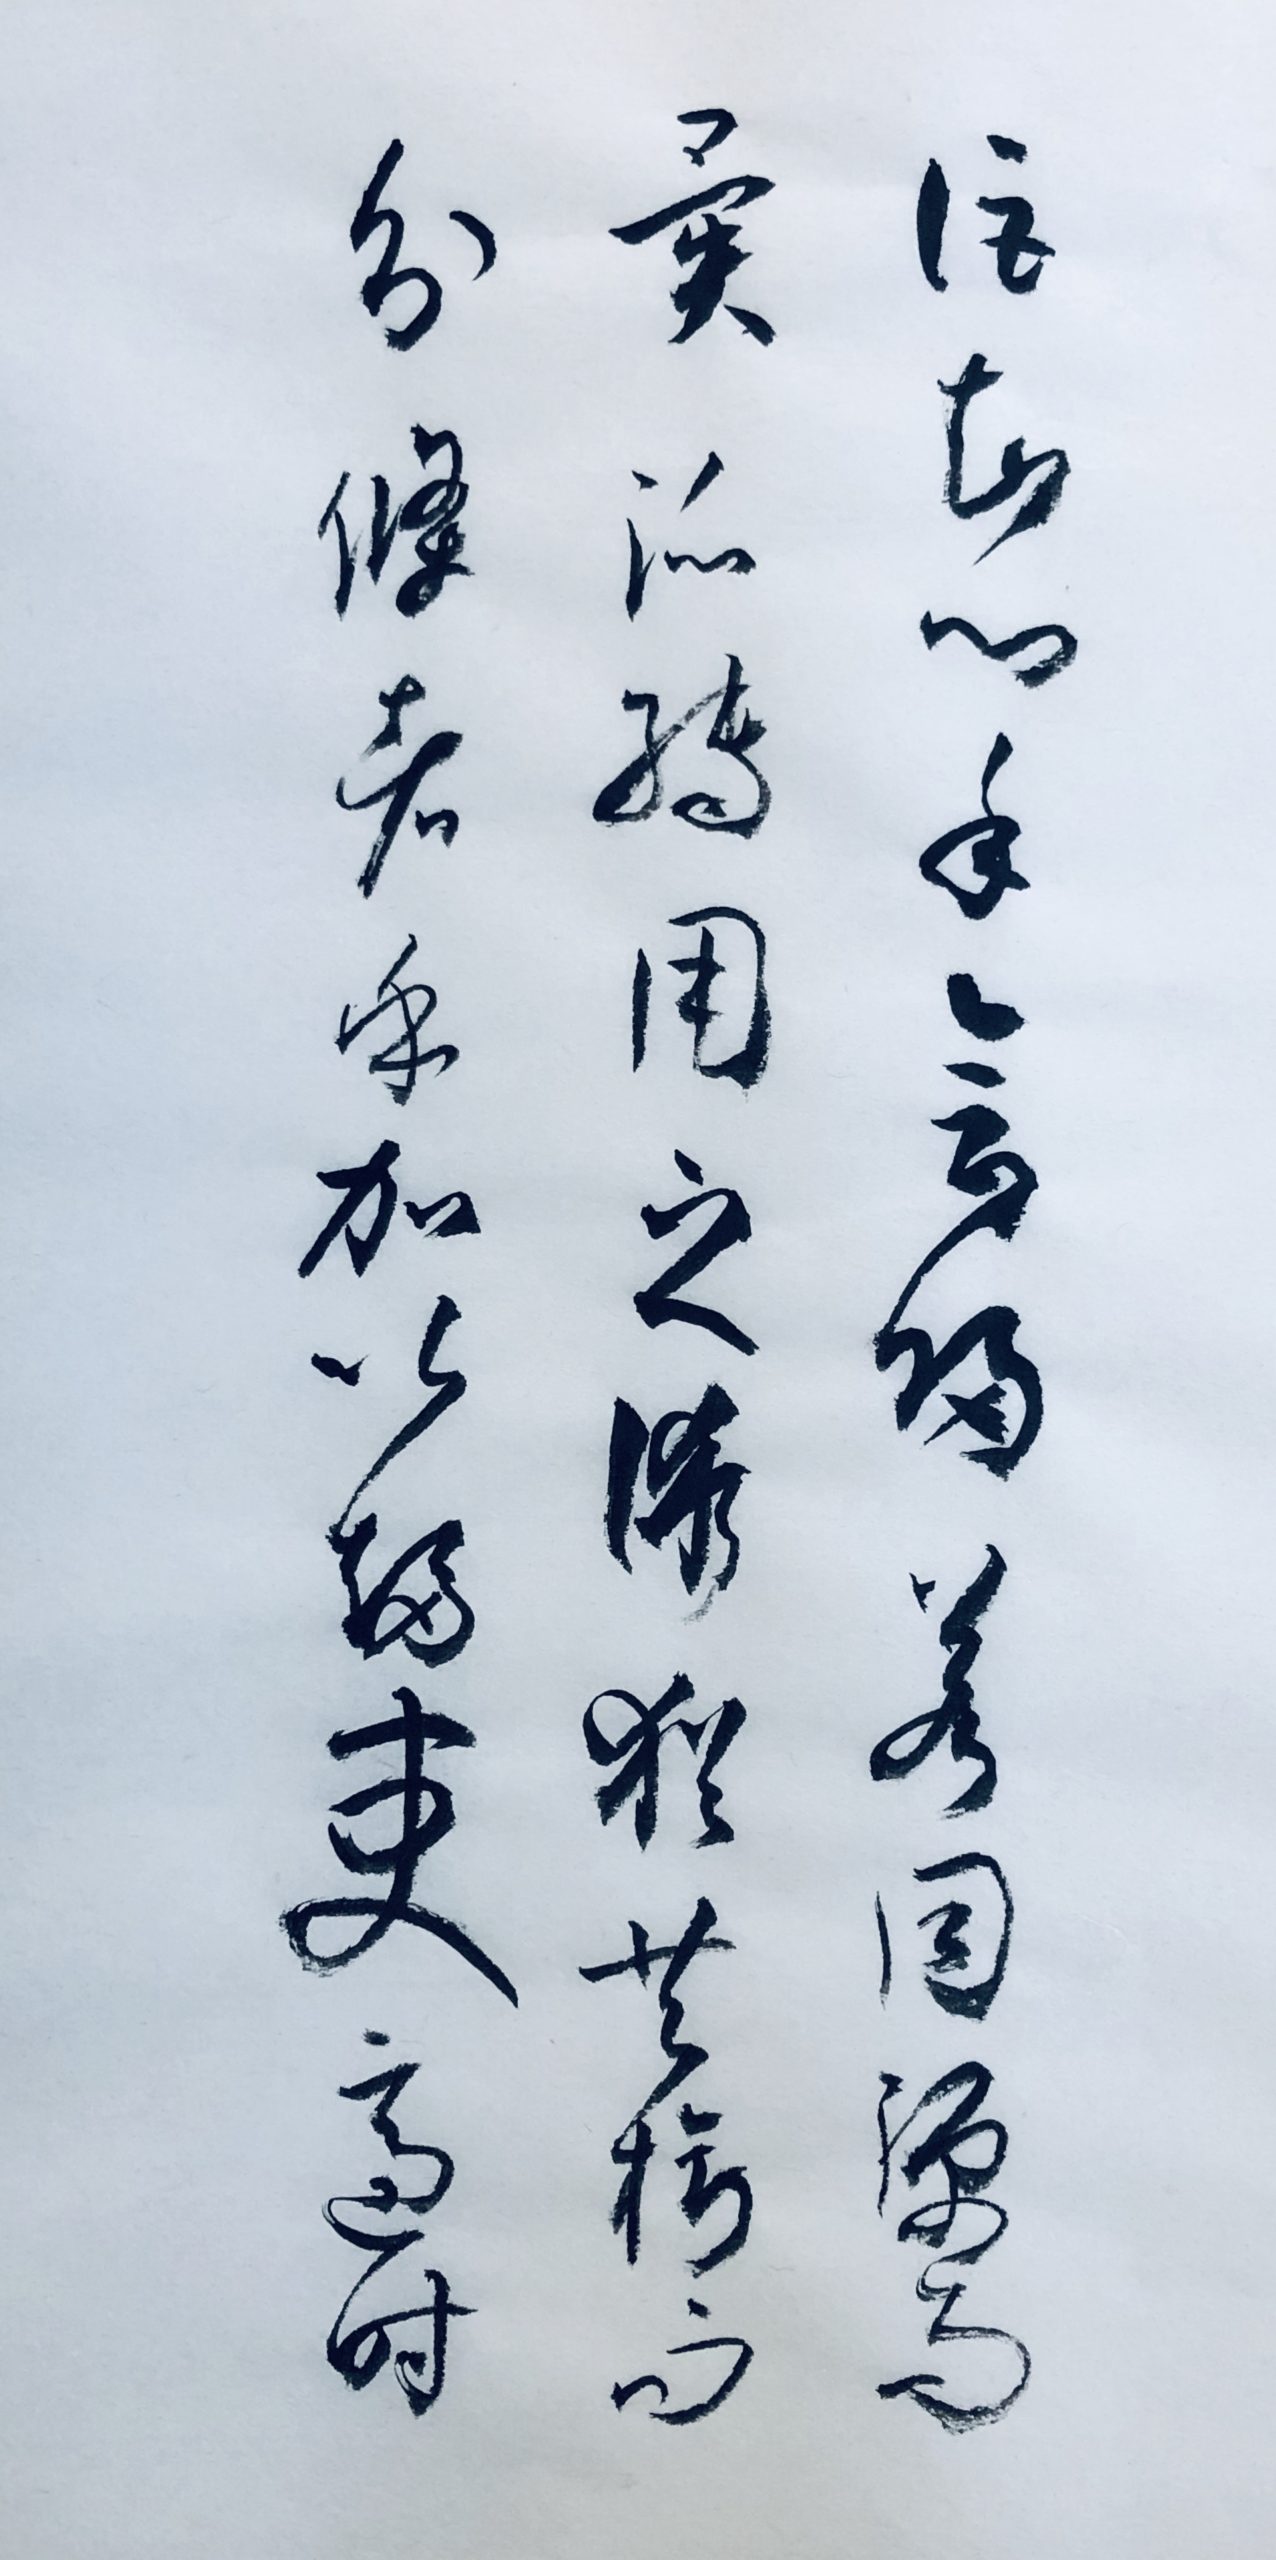 信知心手會歸若同源而
異派轉用之術猶共樹而
分條者乎加以趍變適時